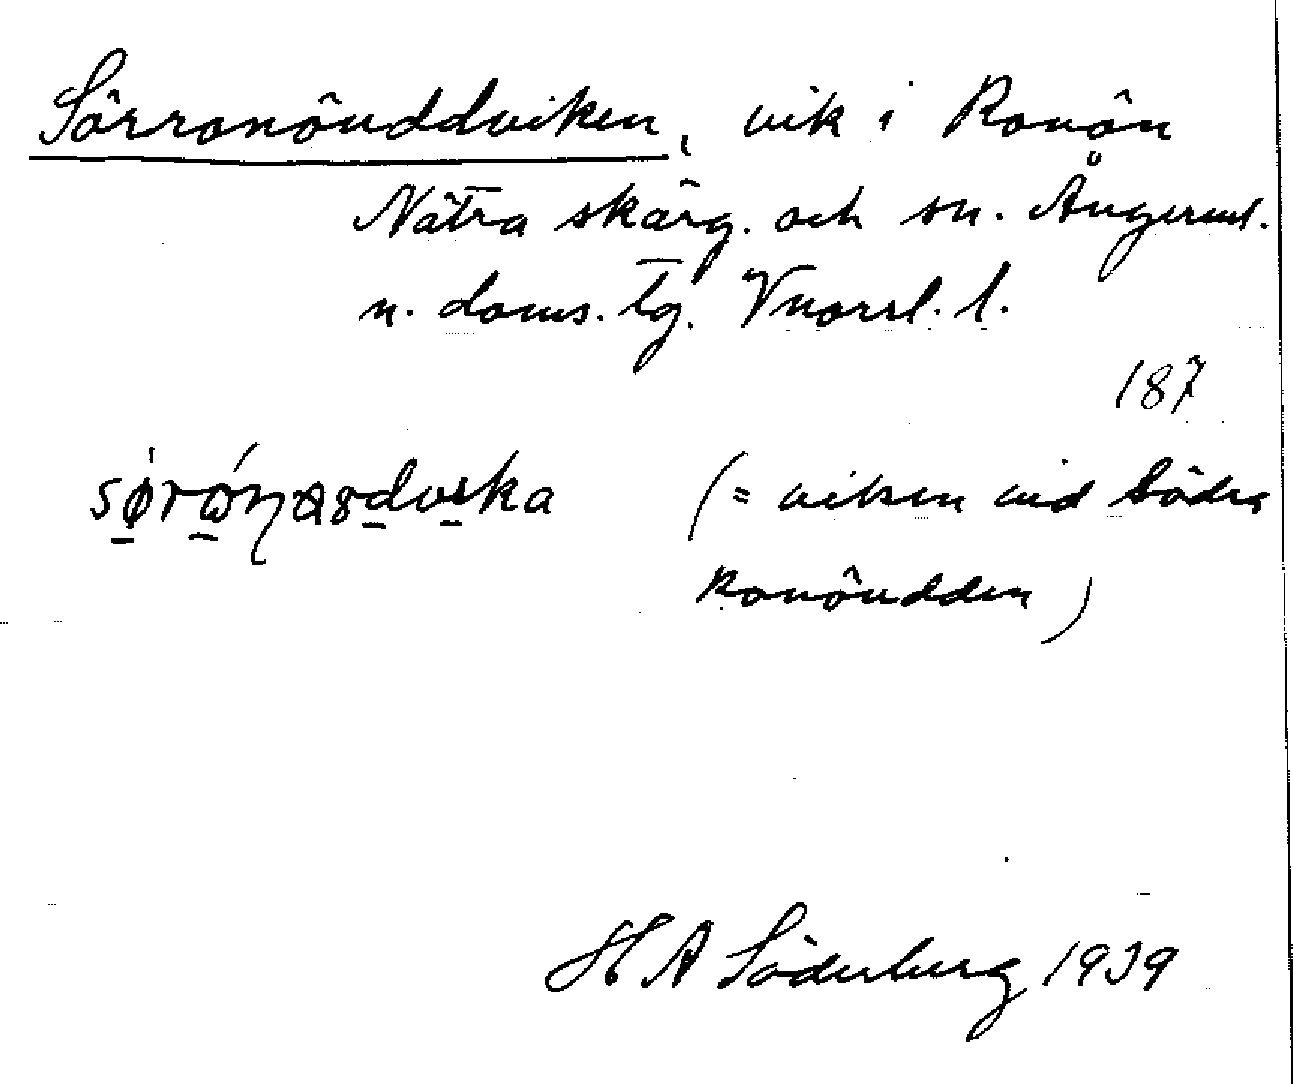 Sörronöuddviken, vik i Ronön
Nätra skärg. och sn. Ångerml.
n. doms. tg. Vnorrl. l.
187
(= viken vid Södra
Ronöudden)
H A Söderberg 1939